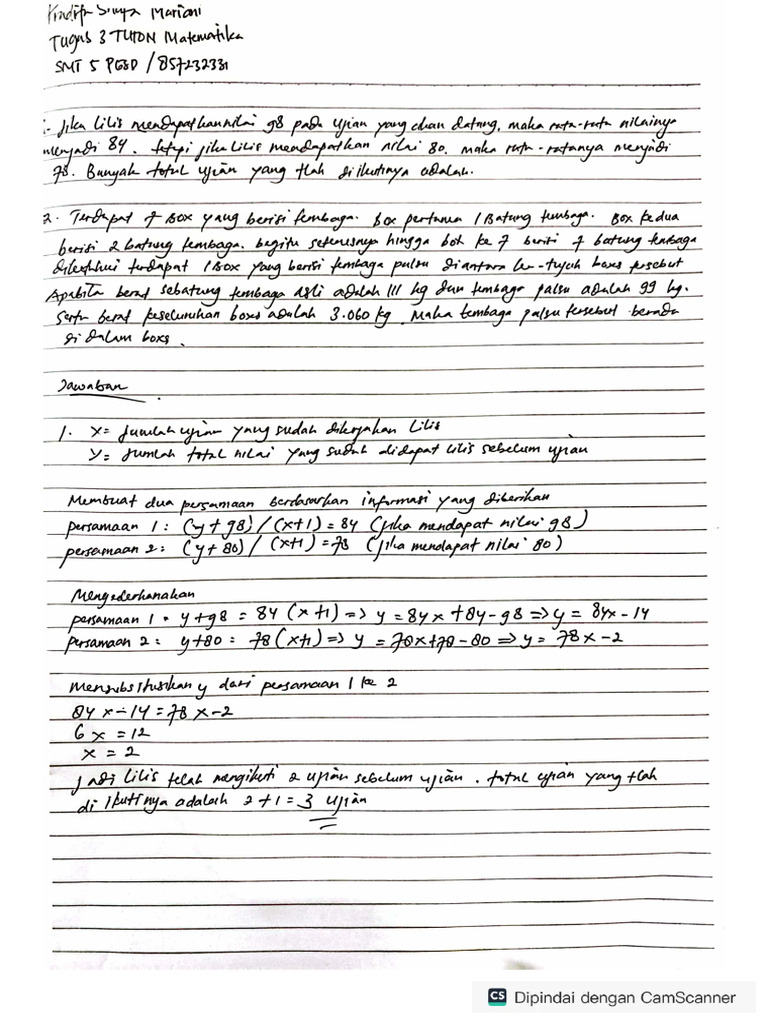 Mariani
Tugas 3 TUTON Matematika
SMT 5 PGSD / 857232331
1. Jika Lilis mendapatkan nilai 98 pada ujian yang akan datang, maka rata-rata nilainya
menjadi 84. tetapi jika Lilis mendapatkan nilai 80. maka rata-ratanya menjadi
78. Banyak total ujian yang tlah diikutinya adalah.
2. Terdapat 7 Box yang berisi tembaga. Box pertama 1 Batang tembaga. Box kedua
berisi 2 batang tembaga. begitu seterusnya hingga box ke 7 berisi 7 batang tembaga
diketahui terdapat 1 Box yang berisi tembaga palsu diantara ke-tujuh boxs tersebut
Apabila berat sebatang tembaga asli adalah 111 kg dan tembaga palsu adalah 99 kg.
serta berat keseluruhan boxs adalah 3.060 kg. Maka tembaga palsu tersebut berada
di dalam boxs.
Jawaban
1. x = Jumlah ujian yang sudah dikerjakan Lilis
y = Jumlah total nilai yang sudah didapat Lilis sebelum ujian
Membuat dua persamaan berdasarkan informasi yang diberikan
persamaan 1 : (y + 98) / (x+1) = 84 (jika mendapat nilai 98)
persamaan 2 : (y + 80) / (x+1) = 78 (jika mendapat nilai 80)
persamaan 1 : y+98 = 84 (x+1) => y = 84x + 84 - 98 => y = 84x - 14
persamaan 2 : y+80 = 78 (x+1) => y = 78x+78 - 80 => y = 78x - 2
Mensubstitusikan y dari persamaan 1 ke 2
84 x - 14 = 78 x - 2
6 x = 12
x = 2
Jadi Lilis telah mengikuti 2 ujian sebelum ujian. total ujian yang tlah
di ikutinya adalah 2 + 1 = 3 ujian
CS Dipindai dengan CamScanner